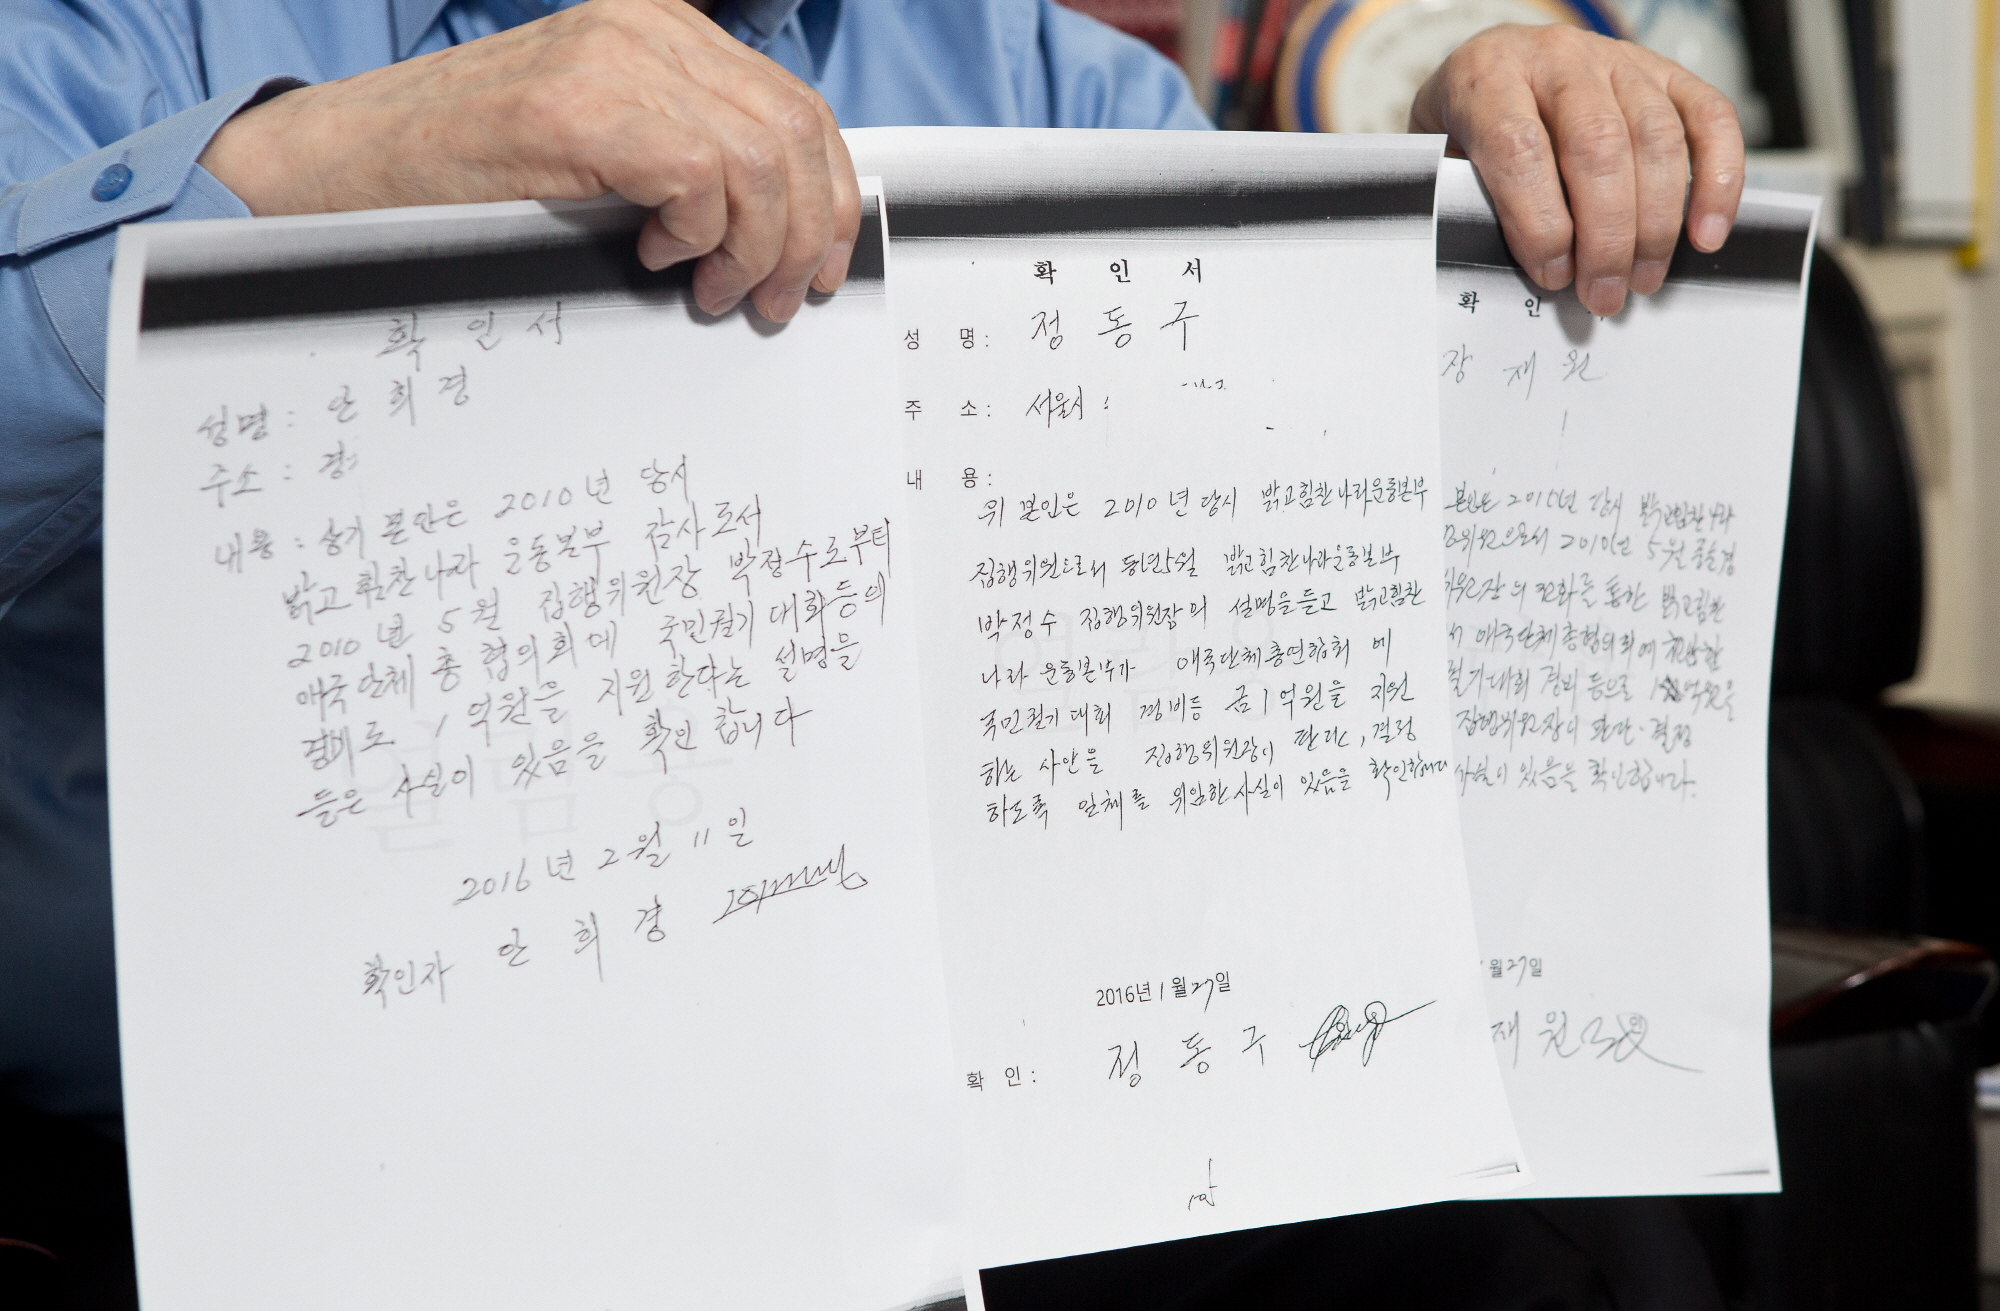 확 인 서
성명 : 안 희 경
주소 : 경
내용 : 상기 본인은 2010년 당시
밝고 힘찬 나라 운동본부 감사로서
2010년 5월 집행위원장 박정수로부터
애국단체 총 협의회에 국민궐기대회등의
경비로 1억원을 지원한다는 설명을
들은 사실이 있음을 확인 합니다
2016년 2월 11일
확인자 안 희 경
확 인 서
성 명 : 정 동 구
주 소 : 서울시
내 용 :
위 본인은 2010년 당시 밝고힘찬나라운동본부
집행위원으로서 동년5월 밝고힘찬나라운동본부
박정수 집행위원장의 설명을듣고 밝고힘찬
나라 운동본부가 애국단체총연합회 에
국민궐기대회 경비등 금1억원을 지원
하는 사안을 집행위원장이 판단, 결정
하도록 일체를 위임한 사실이 있음을 확인합니다
2016년 1월 27일
확 인 : 정 동 구
확 인
장 재 원
본인은 2015년 당시 밝고힘찬나라
위원으로서 2010년 5월 중순경
위원장의 전화를 통한 밝고힘찬
서 애국단체총협의회에
궐기대회 경비 등으로 1억원을
집행위원장이 판단·결정
사실이 있음을 확인합니다.
월 27일
재 원